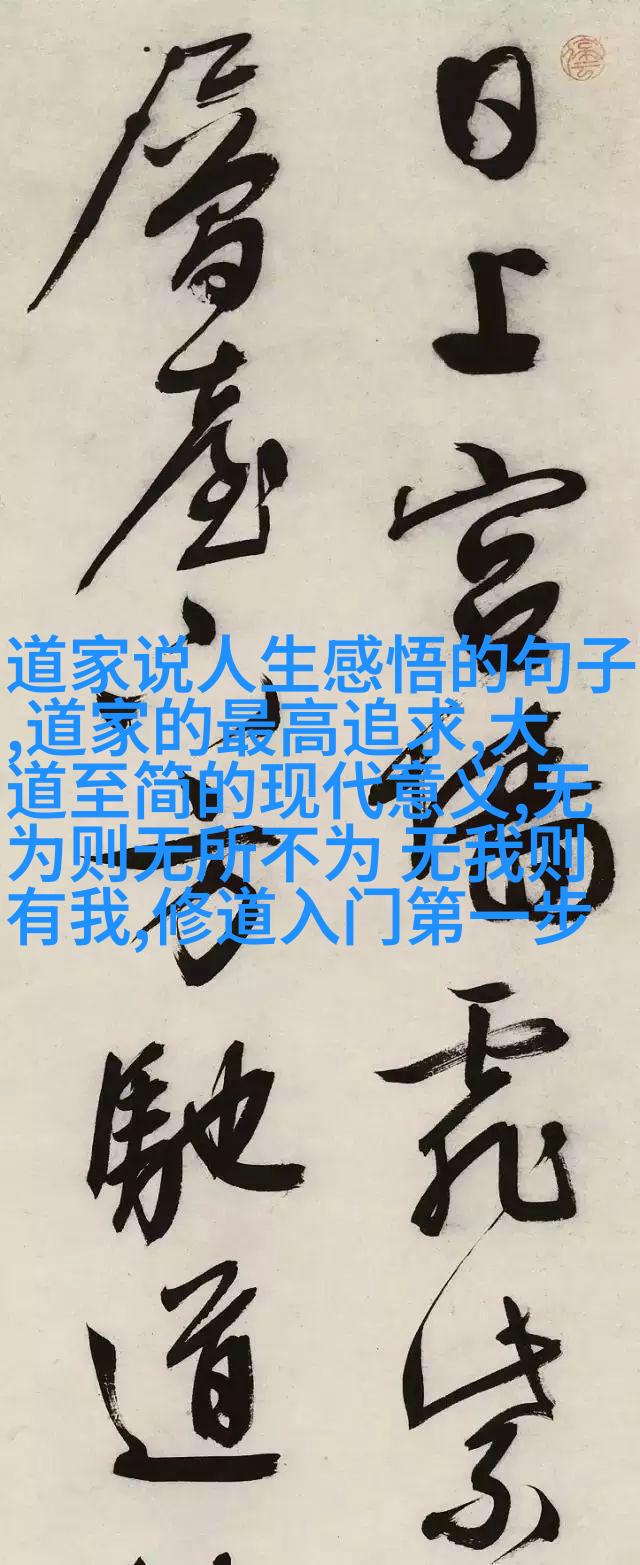 日上宮墻霏紫
層臺下方馳道
道家说人生感悟的句子
,道家的最高追求,大
道至简的现代意义,无
为则无所不为 无我则
有我,修道入门第一步